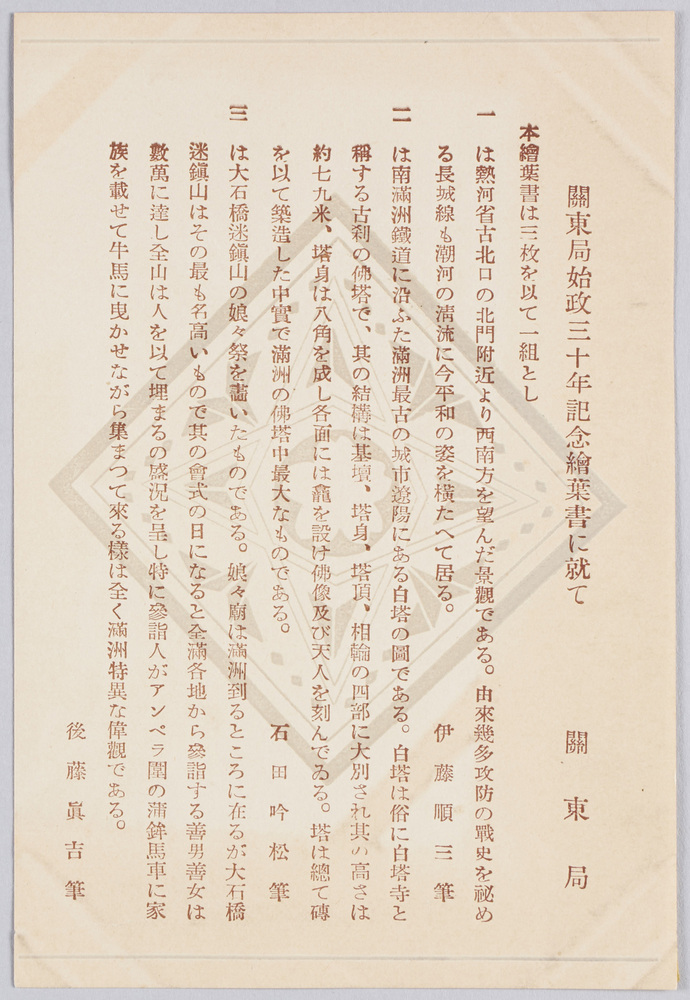 關東局始政三十年記念繪葉書に就て
關東局
本繪葉書は三枚を以て一組とし
一 は熱河省古北口の北門附近より西南方を望んだ景觀である。由來幾多攻防の戰史を祕め
る長城線も潮河の淸流に今平和の姿を橫たへて居る。
伊藤順三筆
二 は南滿洲鐵道に沿ふた滿洲最古の城市遼陽にある白塔の圖である。白塔は俗に白塔寺と
稱する古刹の佛塔で、其の結構は基壇、塔身、塔頂、相輪の四部に大別され其の高さは
約七九米、塔身は八角を成し各面には龕を設け佛像及び天人を刻んでゐる。塔は總て磚
を以て築造した中實で滿洲の佛塔中最大なものである。
石田吟松筆
三 は大石橋迷鎭山の娘々祭を畵いたものである。娘々廟は滿洲到るところに在るが大石橋
迷鎭山はその最も名高いもので其の會式の日になると全滿各地から參詣する善男善女は
數萬に達し全山は人を以て埋まるの盛況を呈し特に參詣人がアンペラ圍の蒲鉾馬車に家
族を載せて牛馬に曳かせながら集まつて來る樣は全く滿洲特異な偉觀である。
後藤眞吉筆